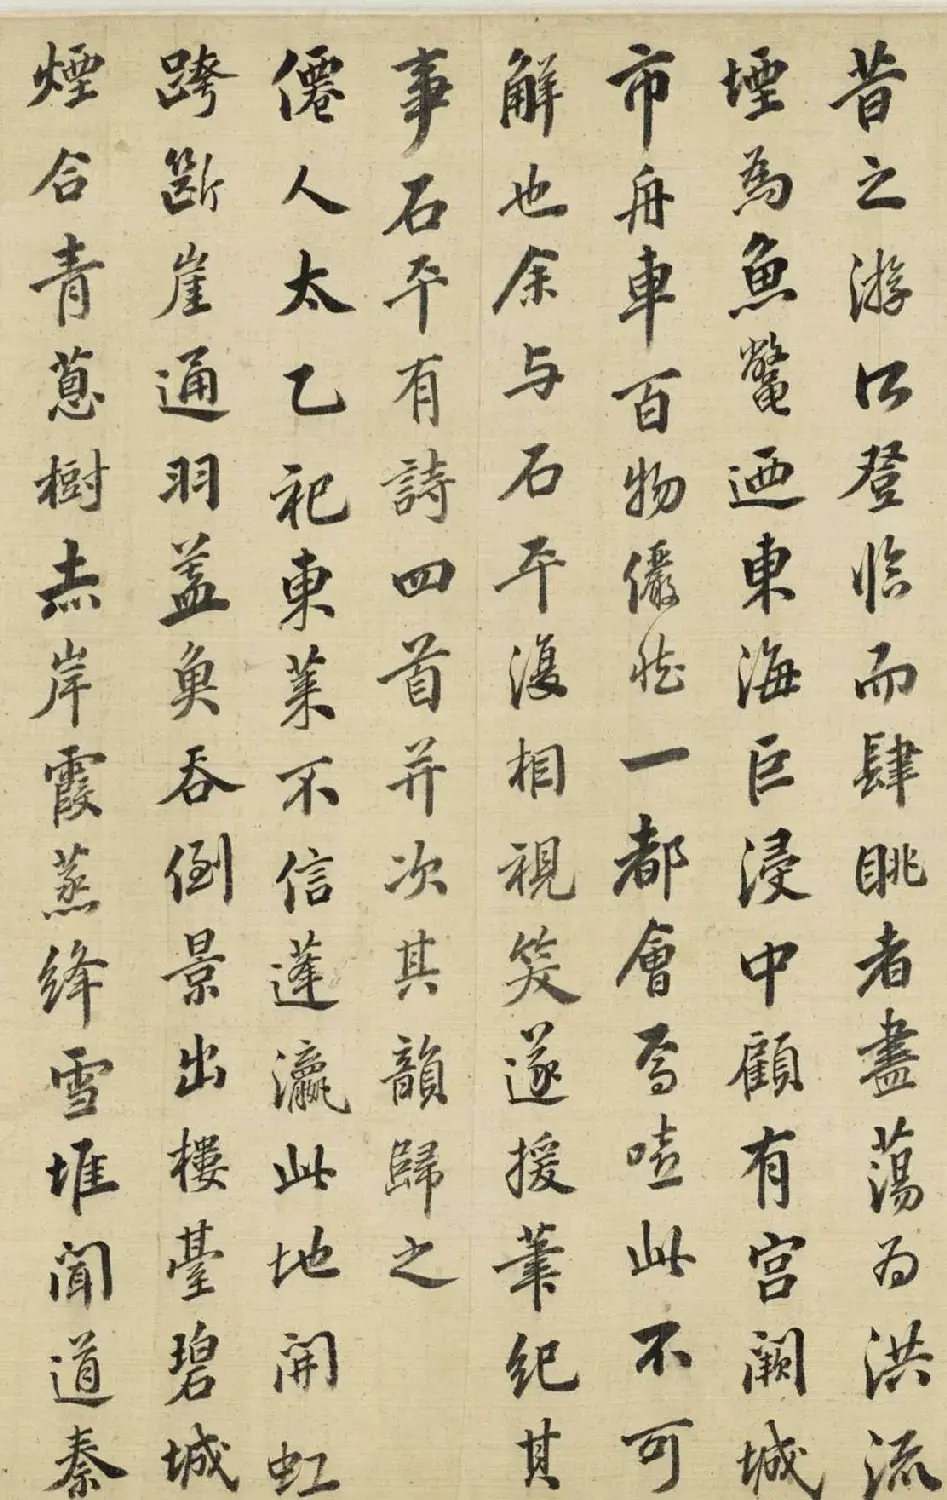 昔之游以登临而肆眺者盡荡为洪流
堙為魚鱉迺東海巨浸中顧有宫阙城
市舟車百物儼然一都會焉噫此不可
解也余与石平復相視笑遂援筆纪其
事石平有詩四首并次其韻歸之
僊人太乙祀東莱不信蓬瀛此地開虹
跨斷崖通羽盖魚吞倒景出樓臺碧城
煙合青蔥樹赤岸霞蒸绛雪堆聞道秦